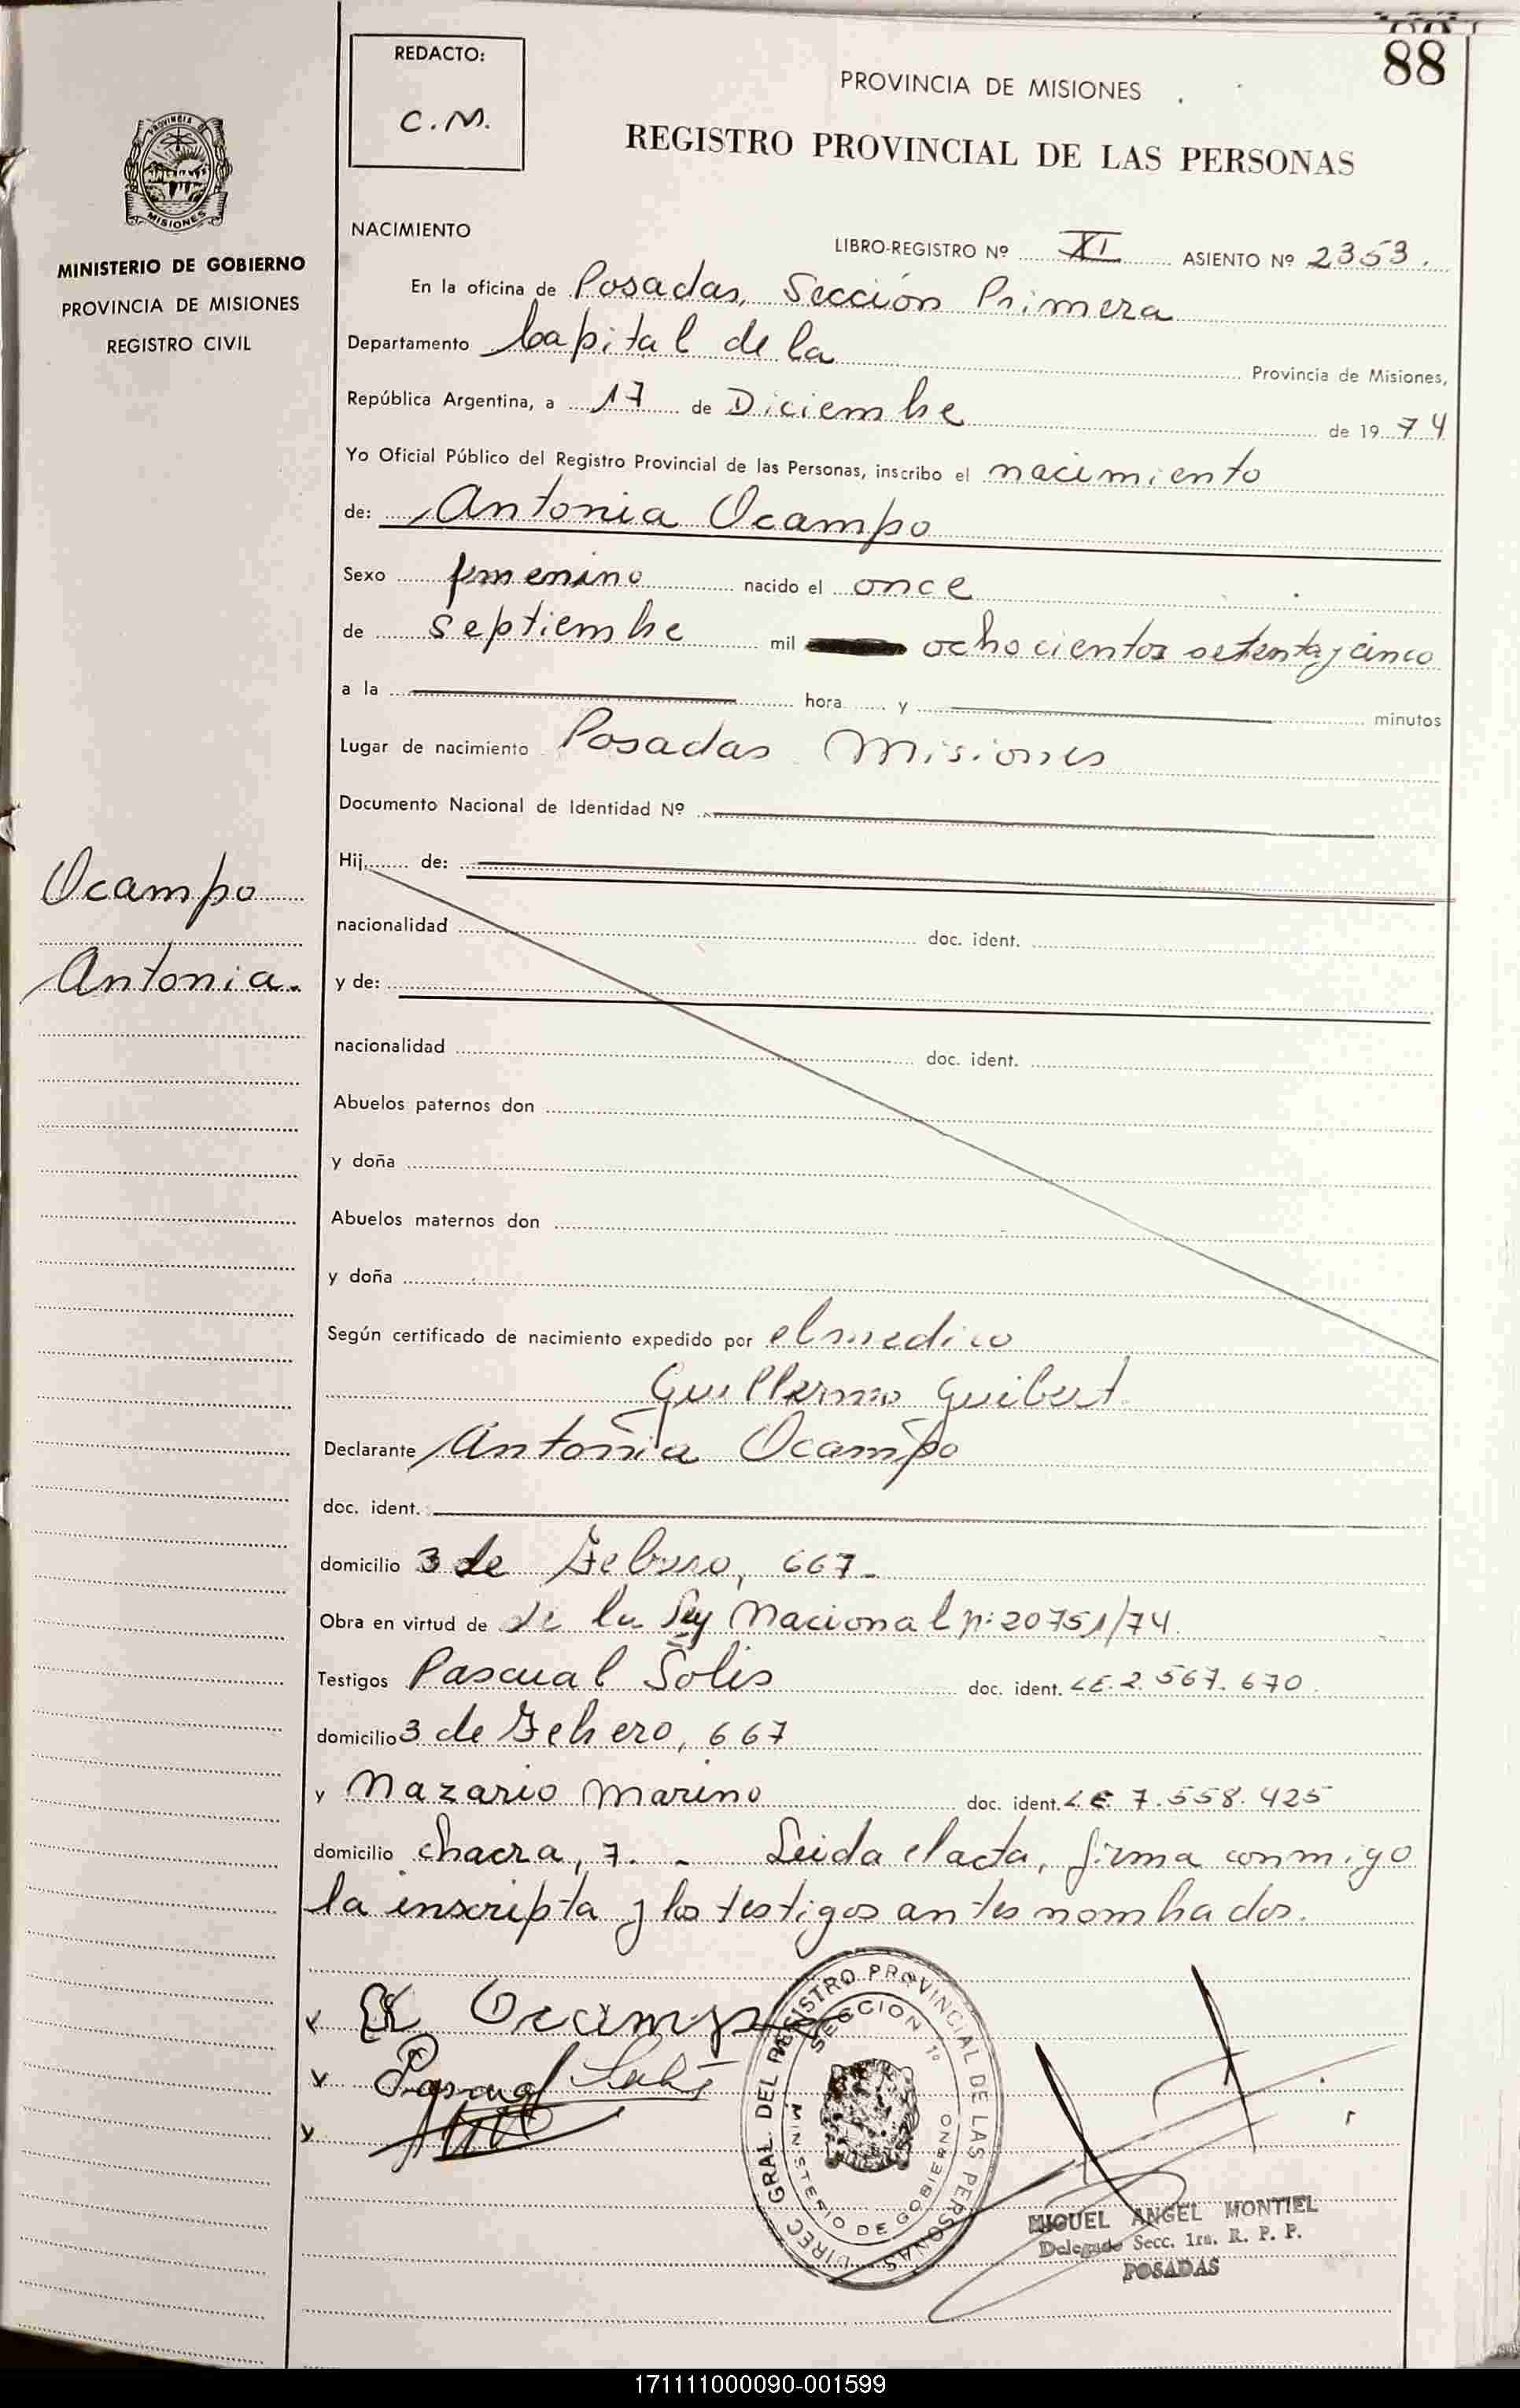 88
REDACTO:
C.M.
PROVINCIA DE MISIONES
REGISTRO PROVINCIAL DE LAS PERSONAS
PROVINCIA DE
MISIONES
MINISTERIO DE GOBIERNO
PROVINCIA DE MISIONES
REGISTRO CIVIL
NACIMIENTO
LIBRO-REGISTRO Nº XI ASIENTO Nº 2353.
En la oficina de Posadas, Sección Primera
Departamento Capital de la Provincia de Misiones,
República Argentina, a 17 de Diciembre de 19 74
Yo Oficial Público del Registro Provincial de las Personas, inscribo el nacimiento
de: Antonia Ocampo
Sexo femenino nacido el once
de septiembre mil ochocientos setenta y cinco
a la hora y minutos
Lugar de nacimiento Posadas Misiones
Documento Nacional de Identidad Nº
Hij de:
Ocampo
Antonia.
nacionalidad doc. ident.
y de:
nacionalidad doc. ident.
Abuelos paternos don
y doña
Abuelos maternos don
y doña
Según certificado de nacimiento expedido por el medico
Guillermo Guibert.
Declarante Antonia Ocampo
doc. ident.
domicilio 3 de Febrero, 667-
Obra en virtud de de la Ley Nacional nº 20751/74.
Testigos Pascual Solis doc. ident. LE. 2.567.670.
domicilio 3 de Febrero, 667
y Nazario Marino doc. ident. LE. 7.558.425
domicilio chacra, 7. - Leida el acta, firma conmigo
la inscripta y los testigos antes nombrados.
Ocampo
Pascual Solis
DIREC. GRAL. DEL REGISTRO PROVINCIAL DE LAS PERSONAS
SECCION 1º
MINISTERIO DE GOBIERNO
MIGUEL ANGEL MONTIEL
Delegado Secc. 1ra. R. P. P.
POSADAS
171111000090-001599